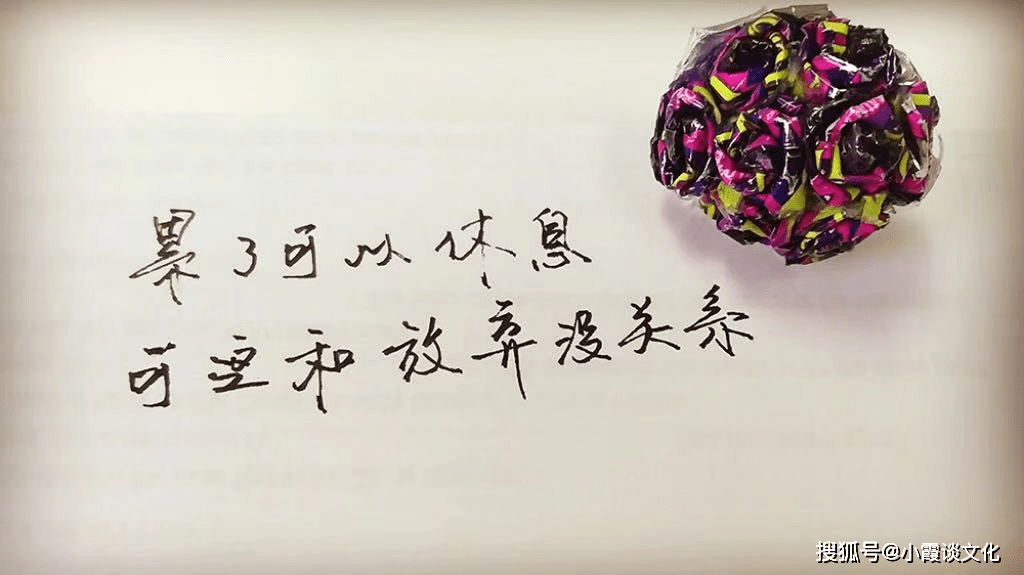 累了可以休息
可这和放弃没关系
搜狐号@小霞谈文化